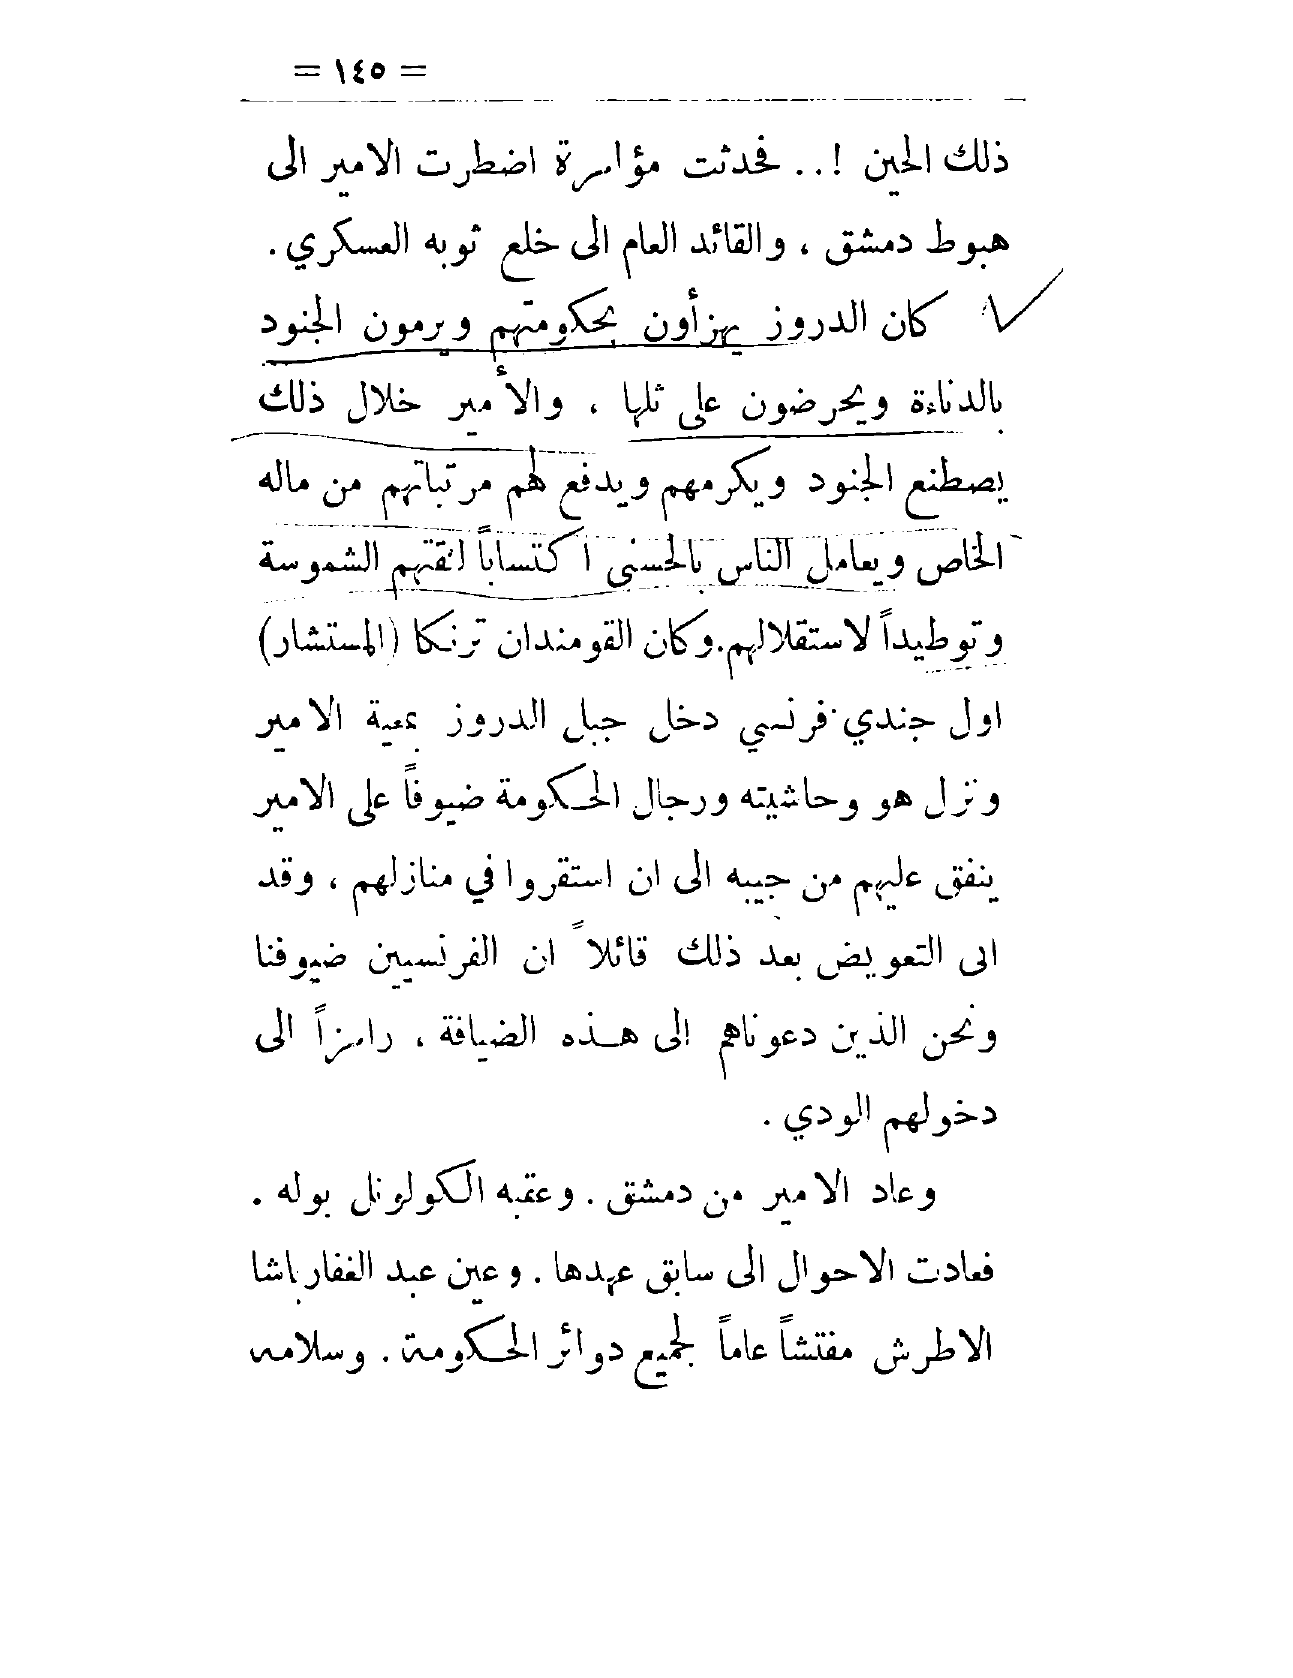 = ١٤٥ =
ذلك الحين !.. فحدثت مؤامرة اضطرت الامير الى
هبوط دمشق ، والقائد العام الى خلع ثوبه العسكري .
كان الدروز يهزأون بحكومتهم ويرمون الجنود
بالدناءة ويحرضون على ثلها ، والأمير خلال ذلك
يصطنع الجنود ويكرمهم ويدفع لهم مرتباتهم من ماله
الخاص ويعامل الناس بالحسنى اكتساباً لثقتهم الشموسة
وتوطيداً لاستقلالهم.وكان القومندان ترنكا (المستشار)
اول جندي فرنسي دخل جبل الدروز بمعية الامير
ونزل هو وحاشيته ورجال الحكومة ضيوفاً على الامير
ينفق عليهم من جيبه الى ان استقروا في منازلهم ، وقد
ابى التعويض بعد ذلك قائلاً ان الفرنسيين ضيوفنا
ونحن الذين دعوناهم الى هـذه الضيافة ، رامزاً الى
دخولهم الودي .
وعاد الامير من دمشق . وعقبه الكولونل بوله .
فعادت الاحوال الى سابق عهدها . وعين عبد الغفار باشا
الاطرش مفتشاً عاماً لجميع دوائر الحكومة . وسلامه